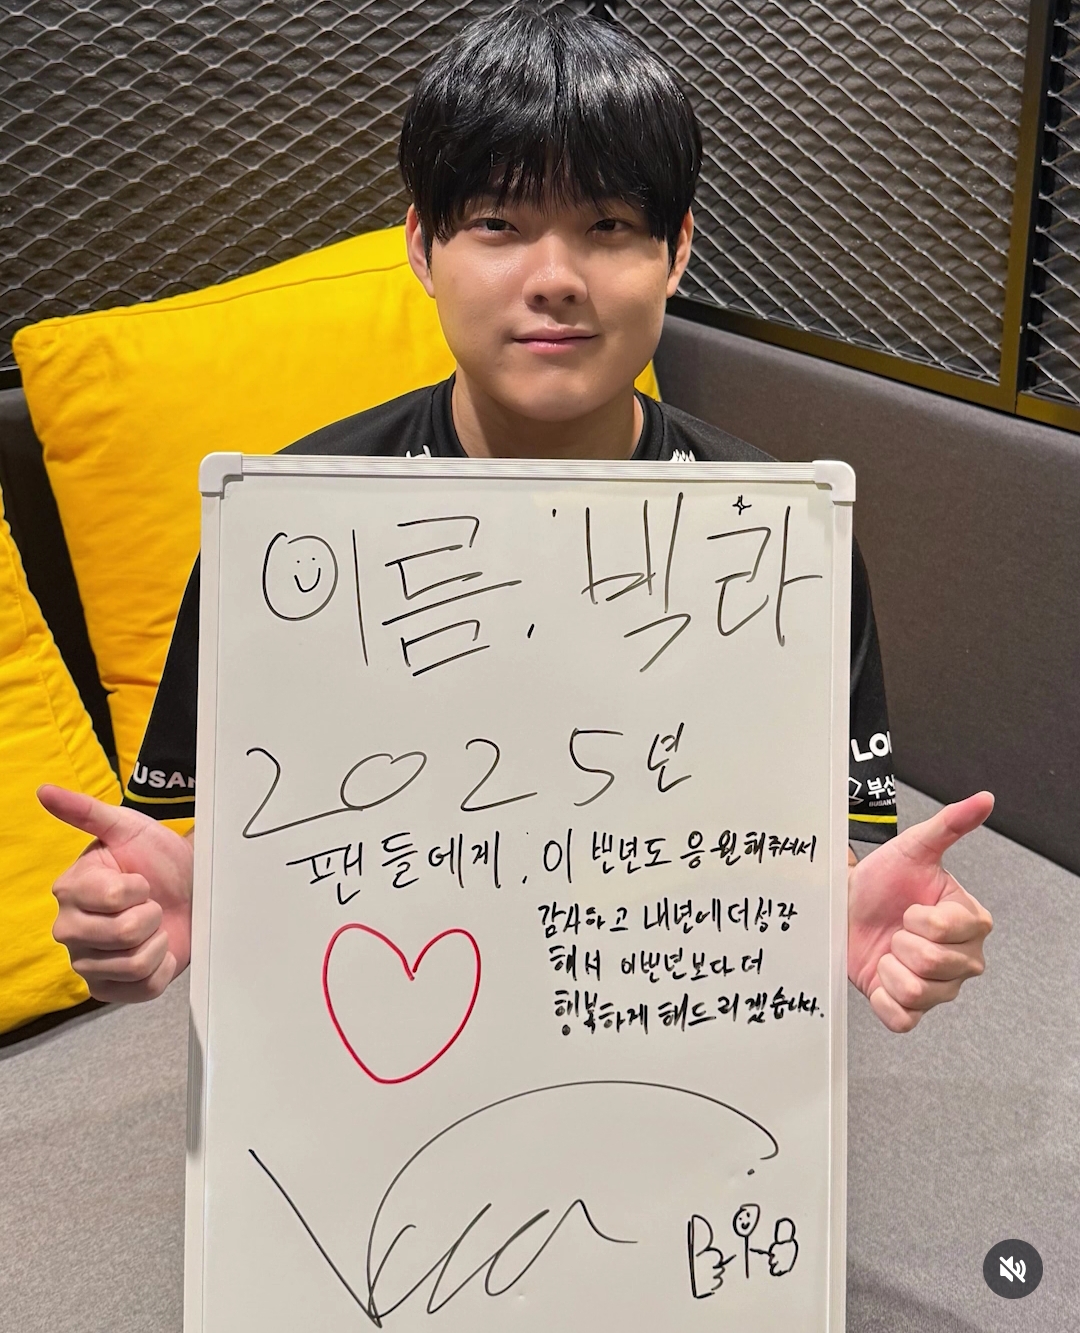 이름. 빅라
2025년
팬들에게. 이번년도 응원해주셔서
감사하고 내년에 더 성장
해서 이번년보다 더
행복하게 해드리겠습니다.
USAN
LO
부산